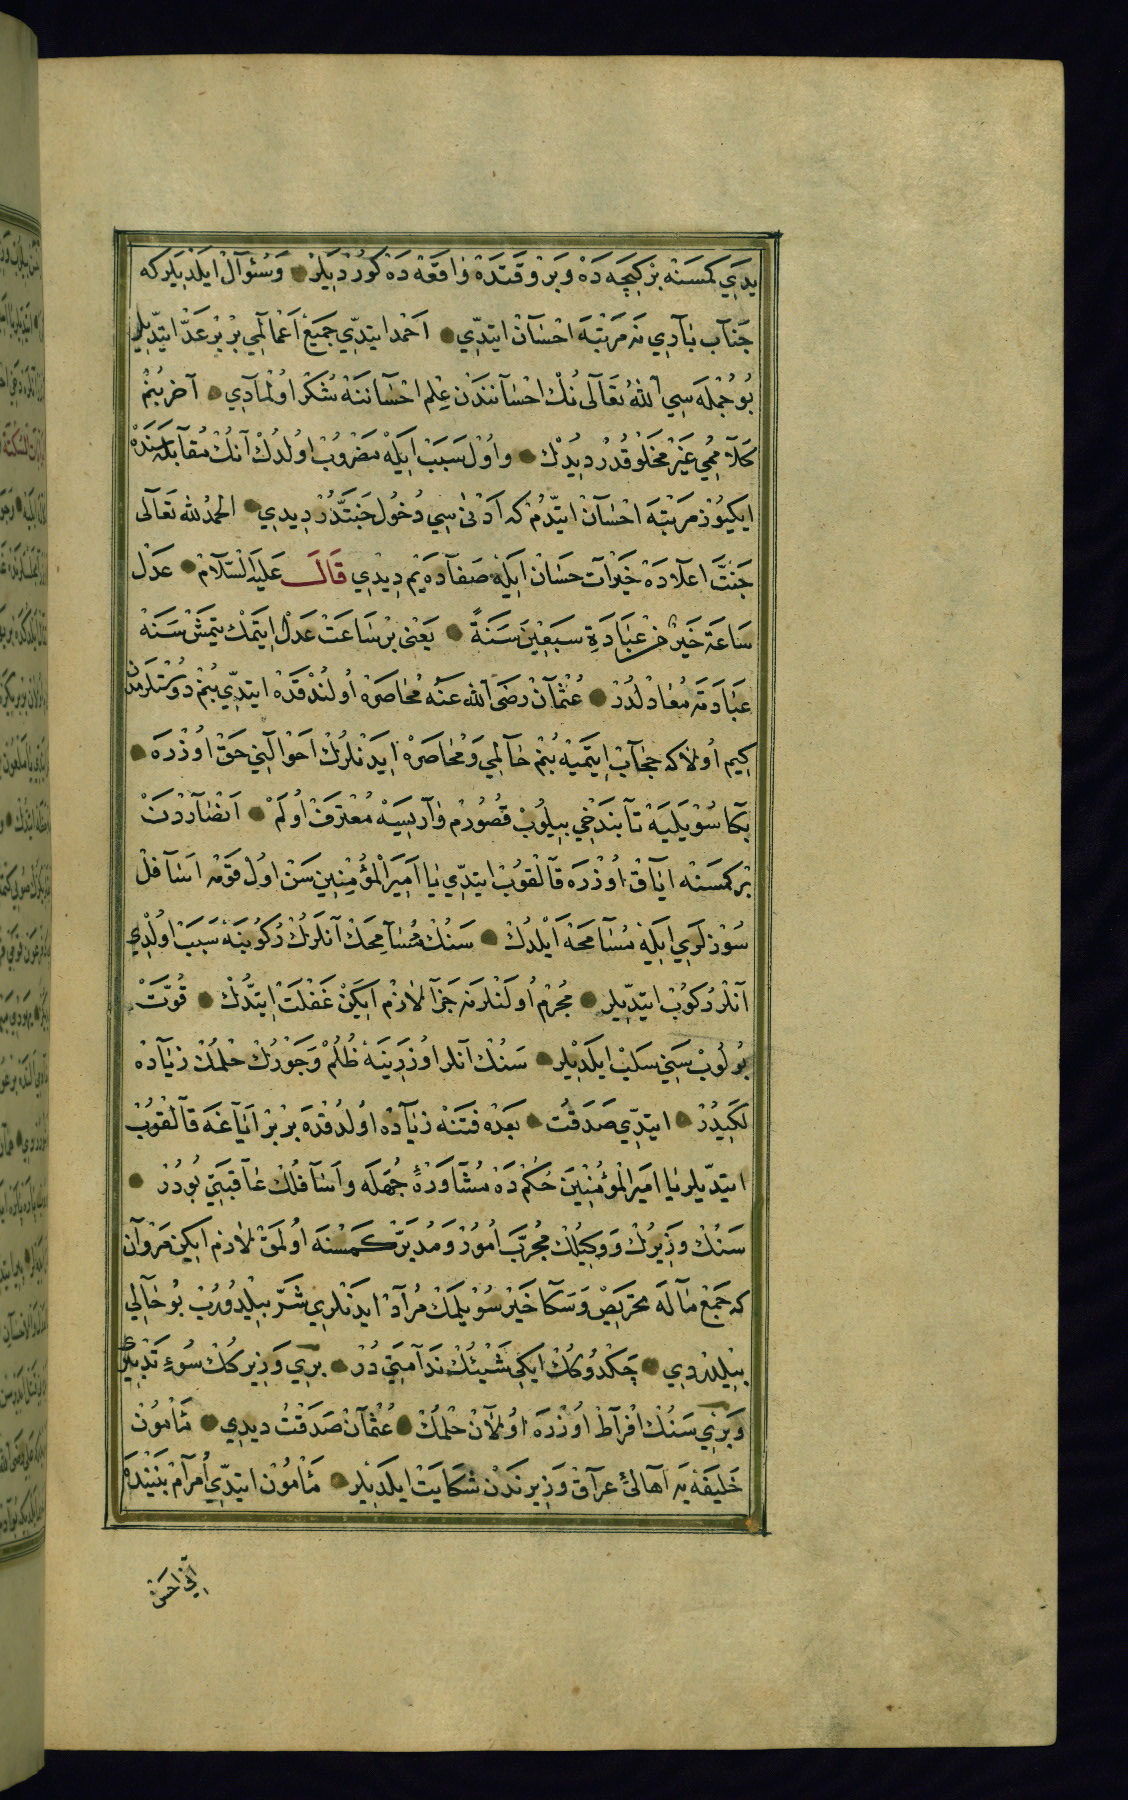 يدي كمسنه بر كيجه ده و بر وقتده واقعه ده كورديلر و سئوآل ايلديلر كه
جناب بآدي نه مرتبه احسآن ايتدي احمد ايتدي جميع اعمالمي بر بر عدّ ايتديلر
بو جمله سي الله تعالى نك احسآنندن غلم احسآننه شكر اولمآدي آخر بنم
كلآممي غير مخلوقدر ديدك و اول سبب ايله مضروب اولدك آنك مقابله سنده
ايكيوز مرتبه احسآن ايتدم كه ادنى سي دخول جنتدر ديدي الحمد لله تعآلى
جنت اعلآده خيرآت حسان ايله صفآده يم ديدي قال عليه السلآم عدل
ساعة خير من عبادة سبعين سنة يعنى بر ساعت عدل ايتمك يتمش سنه
عبادته معادلدر عثمآن رضى الله عنه محاصره اولندقده ايتدي بنم دوستلرمدن
كيم اولا كه حجآب ايتميه بنم حالمي و محاصره ايدنلرك احوالني حق اوزره
بكا سويليه تا بندخي بيلوب قصورم وآريسيه معترف اولم انصآردن
بر كمسنه اياق اوزره قآلقوب ايتدي يا امير المؤمنين سن اول قومه اسآفل
سوزلري ايله مسآمحه ايلدك سنك مسامحك آنلرك ركوبنه سبب اولدي
آنلر ركوب ايتديلر مجرم اولنلرنه جزآ لازم ايكن غفلت ايتدك قوّت
بولوب سني سلب ايلديلر سنك آنلر اوزرينه ظلم و جورك حلمك زيآده
لكيدر ايتدي صدقت بعده فتنه زيآده اولدقده بر بر اياغه قآلقوب
ايتديلر يا امير المؤمنين حكمده مشآورۀ جهله و اسآفلك عآقبتي بودر
سنك وزيرك و وكيلك مجرّب امور و مدبّر كمسنه اولمق لازم ايكن مروآن
كه جمع مآله حريص و سكا خير سويلمك مرآد ايدنلري شرّ بيلدورب بو حآلي
بيلدردي چكدوكك ايكي شيئك ندآمتيدر بري وزيركك سوء تدبيري
و بريي سنك افرآط اوزره اولآن حلمك عثمآن صدقت ديدي مأمون
خليفه يه اهالئ عرآق وزيرندن شكايت ايلديلر مأمون ايتدي امرآم بيننده
آني احسن